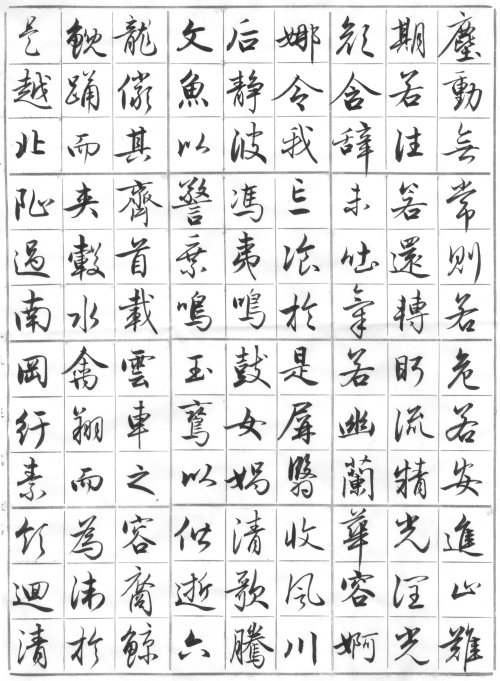 塵動無常則若危若安進止難
期若往若還轉眄流精光潤光
顏含辞未吐氣若幽蘭華容婀
娜令我忘飡於是屏翳收風川
后静波馮夷鳴鼓女媧清歌騰
文魚以警乘鳴玉鸞以偕逝六
龍儼其齊首載雲車之容裔鯨
鯢踊而夾轂水禽翔而為衛於
是越北阯過南岡紆素領迴清